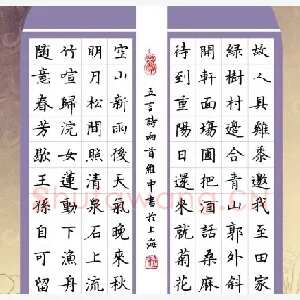 故人具雞黍邀我至田家
綠樹村邊合青山郭外斜
開軒面場圃把酒話桑麻
待到重陽日還來就菊花
五言詩兩首維中書於上海
空山新雨後天氣晚來秋
明月松間照清泉石上流
竹喧歸浣女蓮動下漁舟
隨意春芳歇王孫自可留